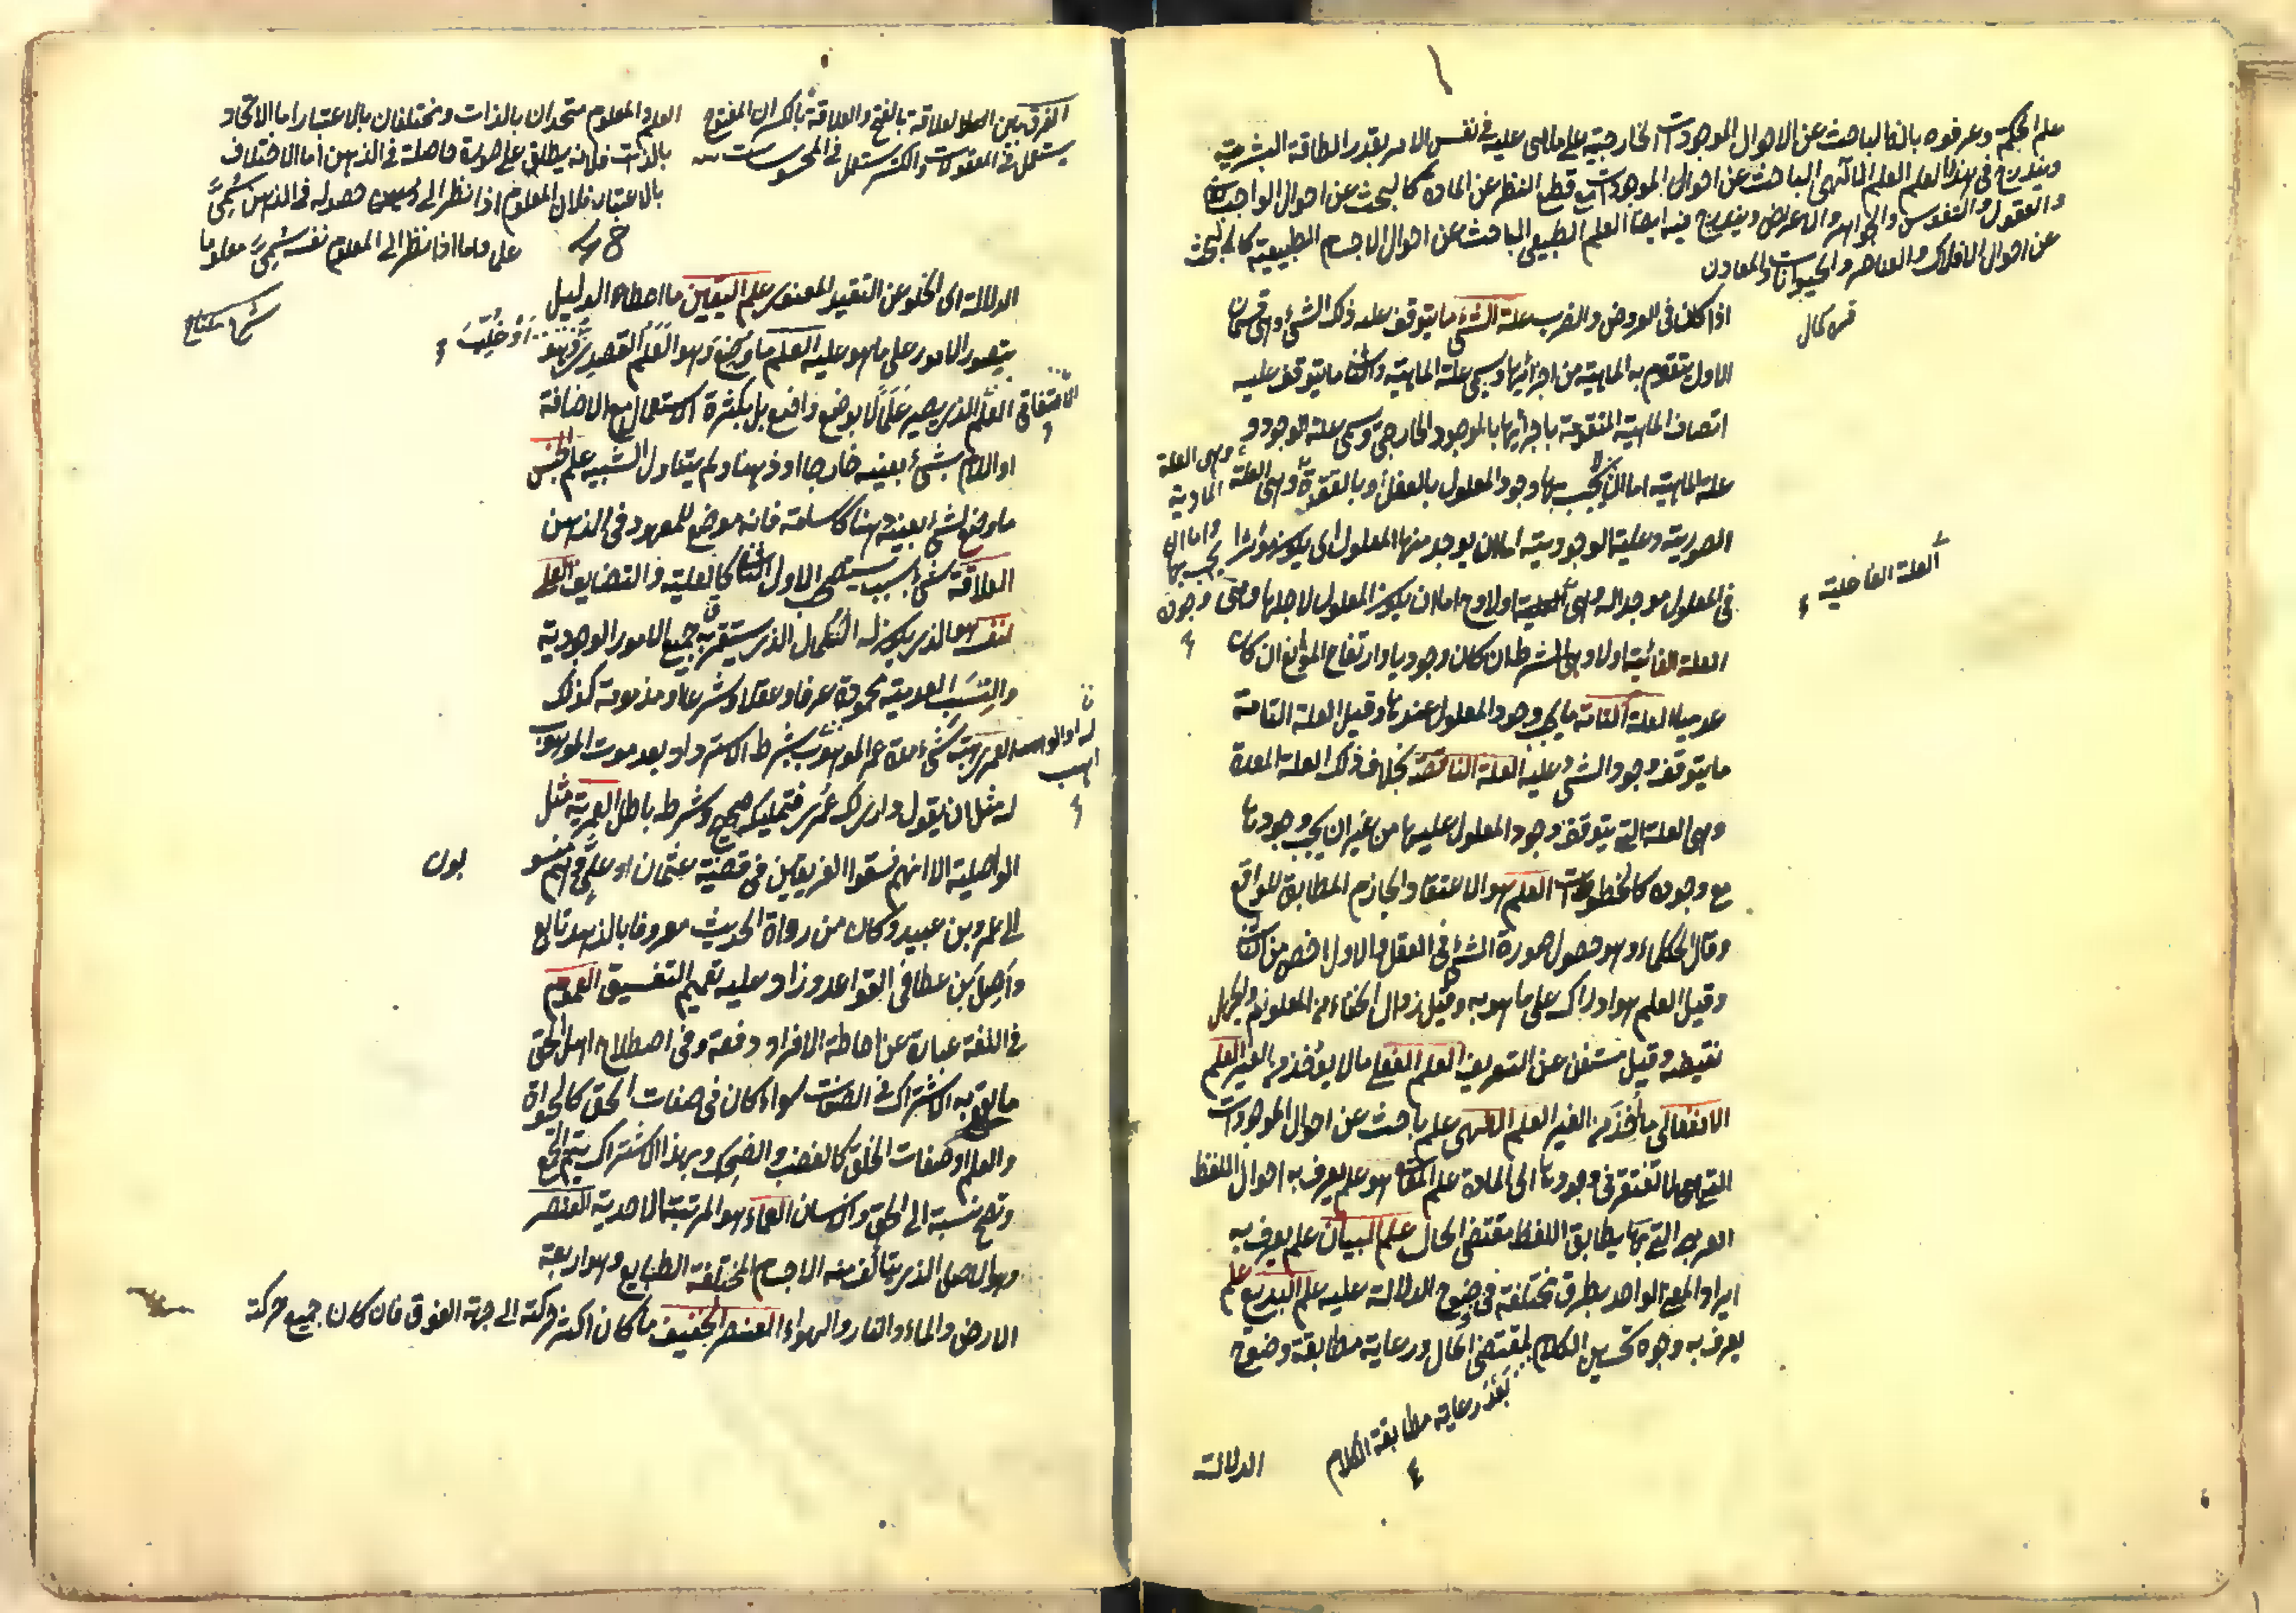 علم الحكمة وعرفوه بانه الباحث عن الاحوال الموجودات الخارجية على ما هى عليه فى نفس الامر بقدر الطاقة البشرية
ويندرج فى هذا العلم العلم الالهى الباحث عن احوال الموجودات مع قطع النظر عن المادة كالبحث عن احوال الواجب
والعقول والنفوس والجواهر والاعراض ويندرج فيه ايضا العلم الطبيعى الباحث عن احوال الاجسام الطبيعية كالبحث
عن احوال الافلاك والعناصر والحيوانات والمعادن
اذا كان فى العروض والضرب علة الشئ ما يتوقف عليه ذلك الشئ وهى قسمان
الاول يتقوم به الماهية من اجزائها ويسمى علة الماهية والثانى ما يتوقف عليه
اتصاف الماهية المتقومة باجزائها بالموجود الخارجى ويسمى علة الوجود و
علة الماهية اما ان لا يجب بها وجود المعلول بالفعل او بالقوة وهى العلة
وهى العلة المادية
واما ان يجب بها وجوده
الصورية وعلية الوجودية اما ان يوجد منها المعلول اى يكون مؤثرا
فى المعلول موجدا له وهى اولا وح اما ان يكون المعلول لاجلها وهى
العلة الفاعلية
العلة الغائية اولا وهى الشرط ان كان وجوديا وارتفاع الموانع ان كان
عدميا العلة التامة ما يجب وجود المعلول عندها وقيل العلة التامة
ما يتوقف وجود الشئ عليه العلة الناقصة بخلاف ذلك العلة المعدة
وهى العلة التى يتوقف وجود المعلول عليها من غير ان يجب وجودها
مع وجوده كالخطوات العلم هو الاعتقاد الجازم المطابق للواقع
وقال الحكماء وهو حصول صورة الشئ فى العقل والاول اخص من الثانى
وقيل العلم هو ادراك على ما هو به وقيل زوال الخفاء من المعلوم والجهل
نقيضه وقيل مستغن عن التعريف العلم الفعلى ما لا يؤخذ من الغير العلم
الانفعالى ما اخذ من الغير العلم الالهى علم باحث عن احوال الموجودات
التى لا تفتقر فى وجودها الى المادة علم المعانى هو علم يعرف به احوال اللفظ
العربى التى بها يطابق اللفظ مقتضى الحال علم البيان علم يعرف به
ايراد المعنى الواحد بطرق مختلفة فى وضوح الدلالة عليه علم البديع علم
يعرف به وجوه تحسين الكلام لمقتضى الحال ورعاية مطابقة وضوح
بعد رعاية مطابقة الكلام
الدلالة
الفرق بين العلاقة بالفتح والعلاقة بالكسر ان المفتوح
يستعمل فى المعقولات والكسر يستعمل فى المحسوسات
العلم والمعلوم متحدان بالذات ومختلفان بالاعتبار اما الاتحاد
بالذات فلانه يطلق على صورة حاصلة فى الذهن اما الاختلاف
بالاعتبار فلان المعلوم اذا نظر الى حصوله فى الذهن يسمى
علما واما اذا نظر الى المعلوم نفسه يسمى معلوما
الدلالة اى الخلو عن التقيد المعنوى علم اليقين ما اعطاه الدليل
بتصور الامور على ما هو عليه العلم ما وضع لشئ وهو العلم القصدى وهو
الاتفاقى العلم الذى يصير علما لا بوضع واضع بل بكثرة الاستعمال مع الاضافة
او اللام بشئ بعينه خارجا او ذهنا ولم يتناول الشبيه علم الجنس
ما وضع لشئ بعينه ذهنا كاسامة فانه موضع للمعهود فى الذهن
العلاقة شئ بسبب يستصحب الاول الثانى كالعلية والتضايف العلى
لنفسه هو الذى يكون له الكمال الذى يستغرق به جميع الامور الوجودية
والنسب العدمية محمودة عرفا وعقلا وشرعا ومذمومة كذلك
العمرى هبة شئ مدة عمر الموهوب بشرط الاسترداد بعد موت الموهوب
له او الواهب
له مثل ان يقول دارى لك عمرى فتمليكه صحيح وشرطه باطل العمرية مثل
الواصلية الا انهم فسقوا الفريقين فى قضية عثمان وعلى وهم منسوبون
الى عمرو بن عبيد وكان من رواة الحديث معروفا بالزهد تابع
واصل بن عطا فى القواعد وزاد عليه تعميم التفسيق العموم
فى اللغة عبارة عن احاطة الافراد دفعة وفى اصطلاح اهل الحق
ما يقع به الاشتراك فى الصفات سواء كان فى صفات الحق كالحيوة
والعلم او صفات الخلق كالغضب والضحك وبهذا الاشتراك يتم الجمع
وتصح نسبة الى الحق والانسان العماء هو المرتبة الاحدية العنصر
وهو الاصل الذى يتألف منه الاجسام المختلفة الطبايع وهو اربعة
الارض والماء والنار والهواء العنصر الخفيف ما كان اكثر حركته الى جهة الفوق فان كان جميع حركته